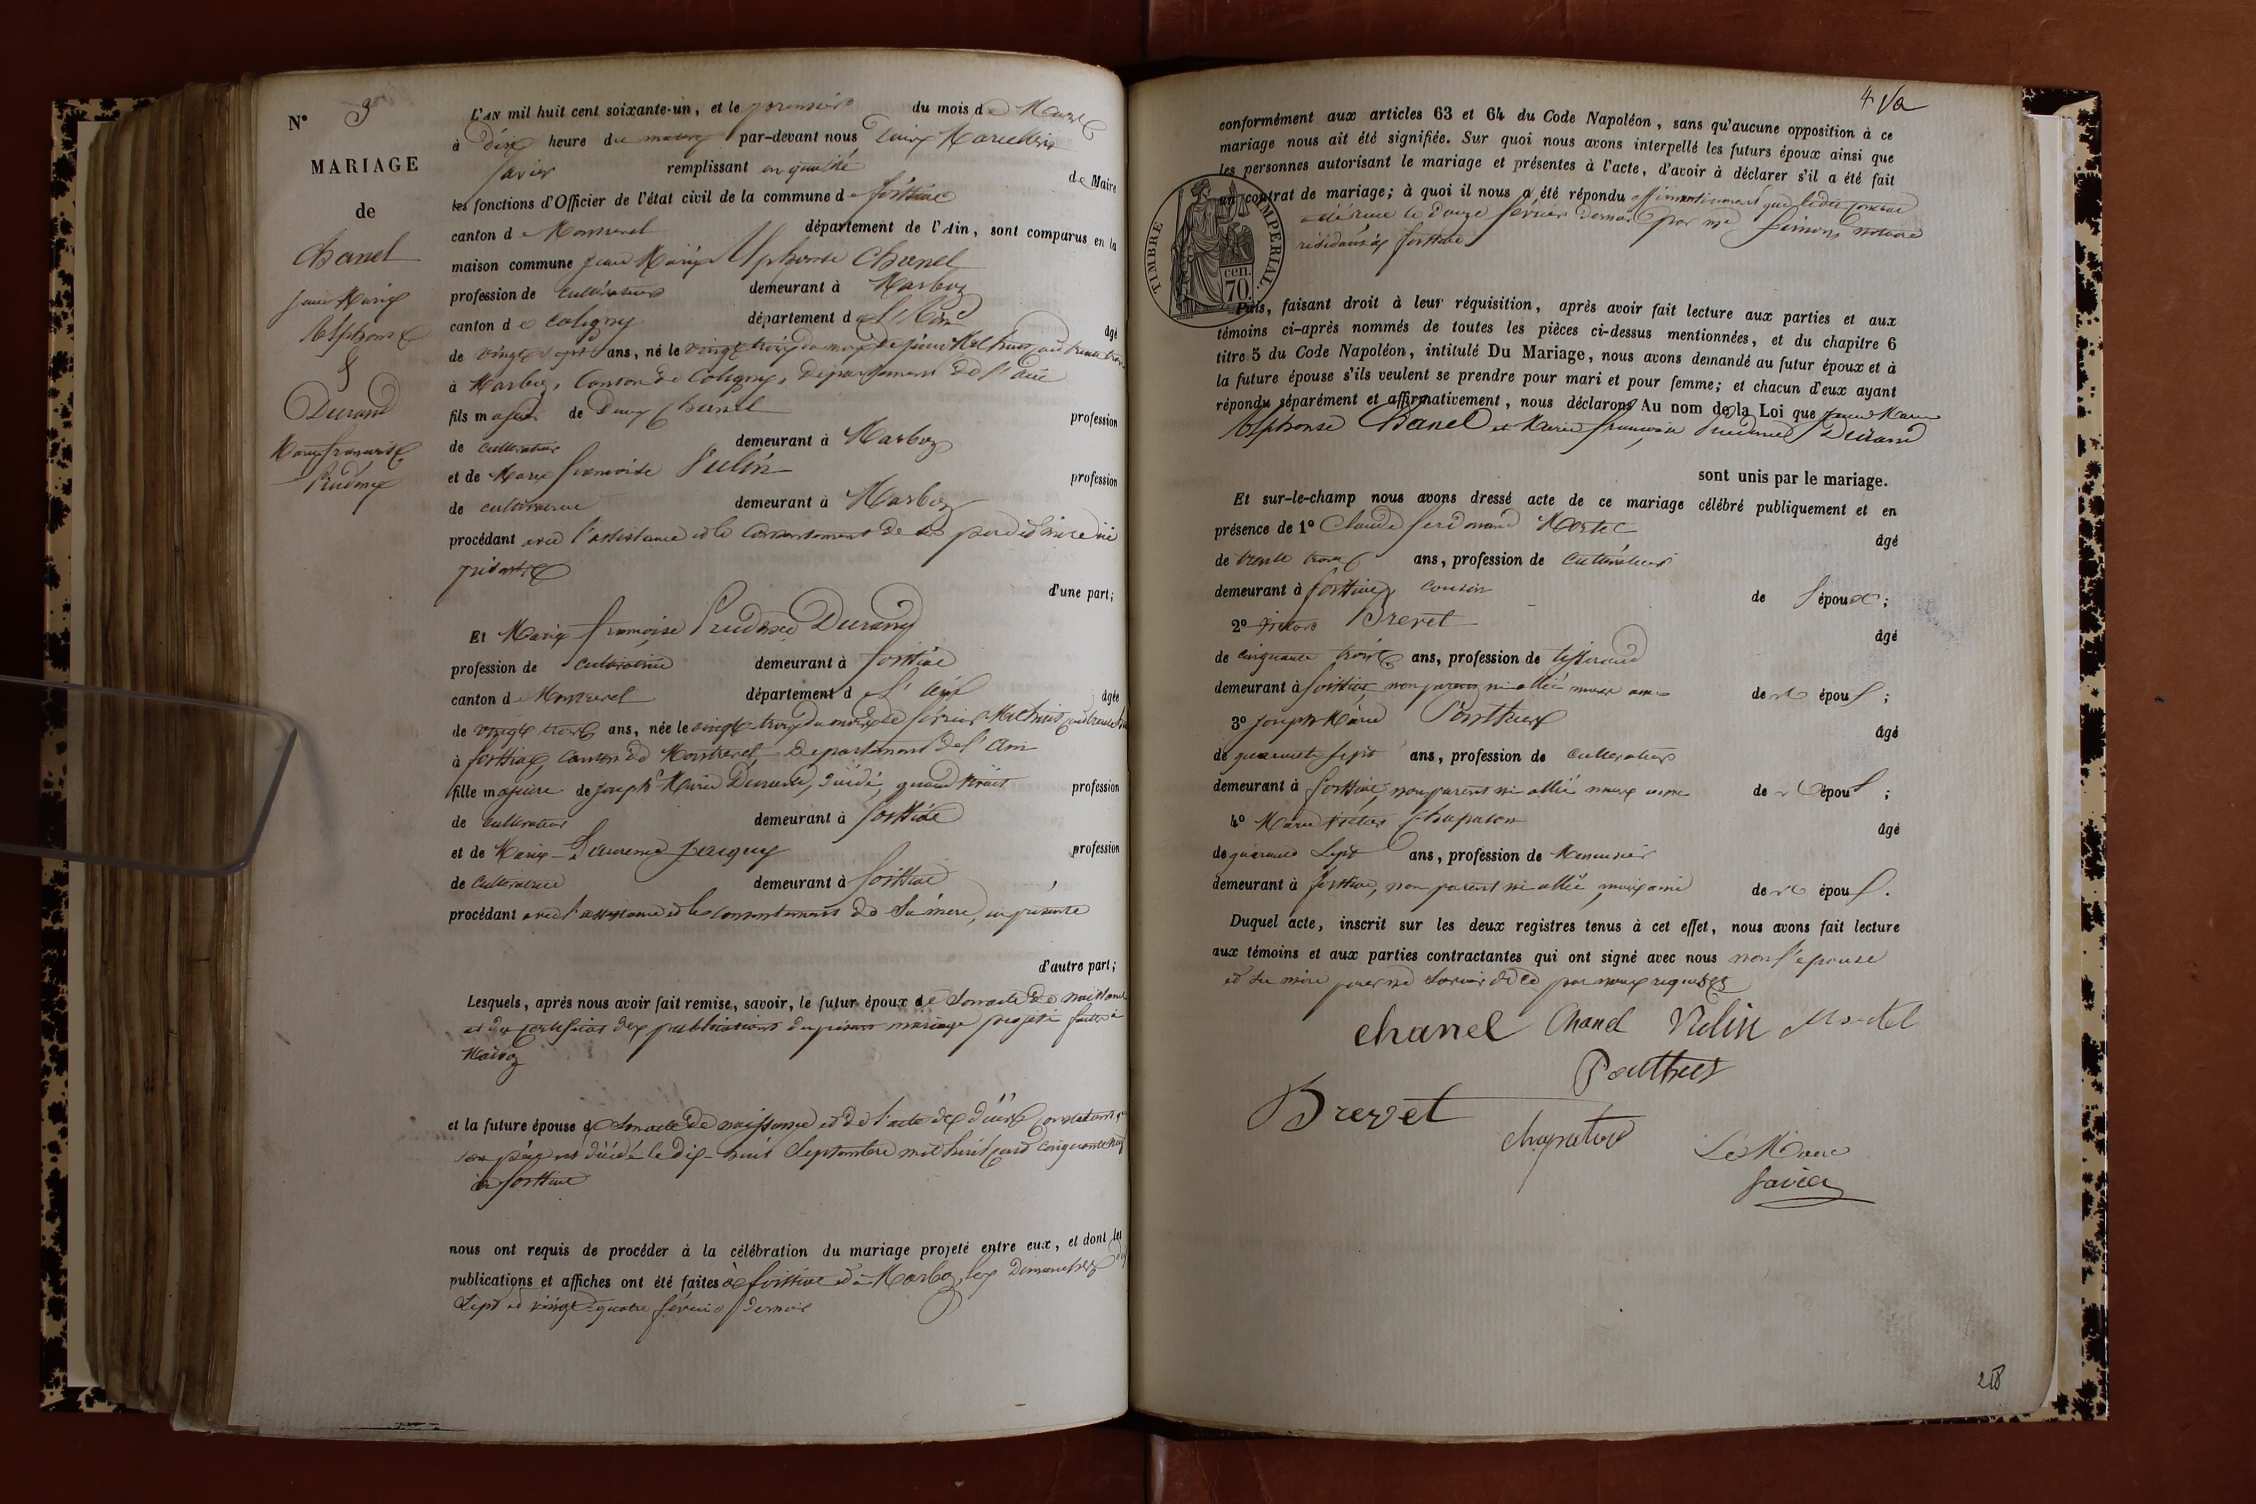 N° 3
MARIAGE
de
Chanel
Jean Marie
Alphonse
&
Durand
Marie françoise
Prudence
L'AN mil huit cent soixante-un, et le premier du mois de Mars
à dix heure du matin par-devant nous Louis Marcellin
favier remplissant en qualité de Maire
les fonctions d'Officier de l'état civil de la commune de foissiat
canton de Montrevel département de l'Ain, sont comparus en la
maison commune Jean Marie Alphonse Chanel
profession de cultivateur demeurant à Marboz
canton de Coligny département de l'Ain âgé
de vingt sept ans, né le vingt trois du mois de Mil huit cent trente trois
à Marboz, Canton de Coligny, département de l'ain
fils majeur de Chanel profession
de cultivateur demeurant à Marboz
et de Marie françoise profession
de cultivatrice demeurant à Marboz
procédant avec l'assistance et le consentement de ses père et mère ici
présents
d'une part;
Et Marie françoise Prudence Durand
profession de cultivatrice demeurant à foissiat
canton de Montrevel département de l'Ain âgée
de vingt trois ans, née le vingt trois du mois de février Mil huit cent trente
à foissiat, canton de Montrevel, département de l'ain
fille majeure de joseph Marie Durand, décédé, quand vivait profession
de cultivateur demeurant à foissiat
et de Marie Laurence profession
de cultivatrice demeurant à foissiat
procédant avec l'assistance et le consentement de sa mère, ici présente
d'autre part;
Lesquels, après nous avoir fait remise, savoir, le futur époux de son acte de naissance
et du certificat des publications du présent mariage projeté faites à
Marboz
et la future épouse de son acte de naissance et de l'acte de décès constatant que
son père est décédé le dix-huit Septembre mil huit cent cinquante
à foissiat
nous ont requis de procéder à la célébration du mariage projeté entre eux, et dont les
publications et affiches ont été faites à foissiat et à Marboz les Dimanches
dix sept et vingt-quatre février dernier
4
conformément aux articles 63 et 64 du Code Napoléon, sans qu'aucune opposition à ce
mariage nous ait été signifiée. Sur quoi nous avons interpellé les futurs époux ainsi que
les personnes autorisant le mariage et présentes à l'acte, d'avoir à déclarer s'il a été fait
un contrat de mariage; à quoi il nous a été répondu affirmativement que ledit contrat
a été reçu le douze février dernier par me notaire
résidant à foissiat
TIMBRE IMPERIAL.
70 cen.
Puis, faisant droit à leur réquisition, après avoir fait lecture aux parties et aux
témoins ci-après nommés de toutes les pièces ci-dessus mentionnées, et du chapitre 6
titre 5 du Code Napoléon, intitulé Du Mariage, nous avons demandé au futur époux et à
la future épouse s'ils veulent se prendre pour mari et pour femme; et chacun d'eux ayant
répondu séparément et affirmativement, nous déclarons Au nom de la Loi que Jean Marie
Alphonse Chanel et Marie françoise Prudence Durand
sont unis par le mariage.
Et sur-le-champ nous avons dressé acte de ce mariage célébré publiquement et en
présence de 1° Claude ferdinand âgé
de trente trois ans, profession de cultivateur
demeurant à foissiat, cousin de l'époux;
2° Brevet âgé
de cinquante trois ans, profession de tisserand
demeurant à foissiat, non parent ni allié mais ami des époux;
3° joseph Marie Ponthus âgé
de quarante sept ans, profession de cultivateur
demeurant à foissiat, non parent ni allié mais ami des époux;
4° Marie Chapaton âgé
de quarante sept ans, profession de Menuisier
demeurant à foissiat, non parent ni allié, mais ami des époux.
Duquel acte, inscrit sur les deux registres tenus à cet effet, nous avons fait lecture
aux témoins et aux parties contractantes qui ont signé avec nous non l'épouse
et sa mère pour ne savoir de ce par nous requises
chanel Chanel
Brevet
Le Maire
favier
218